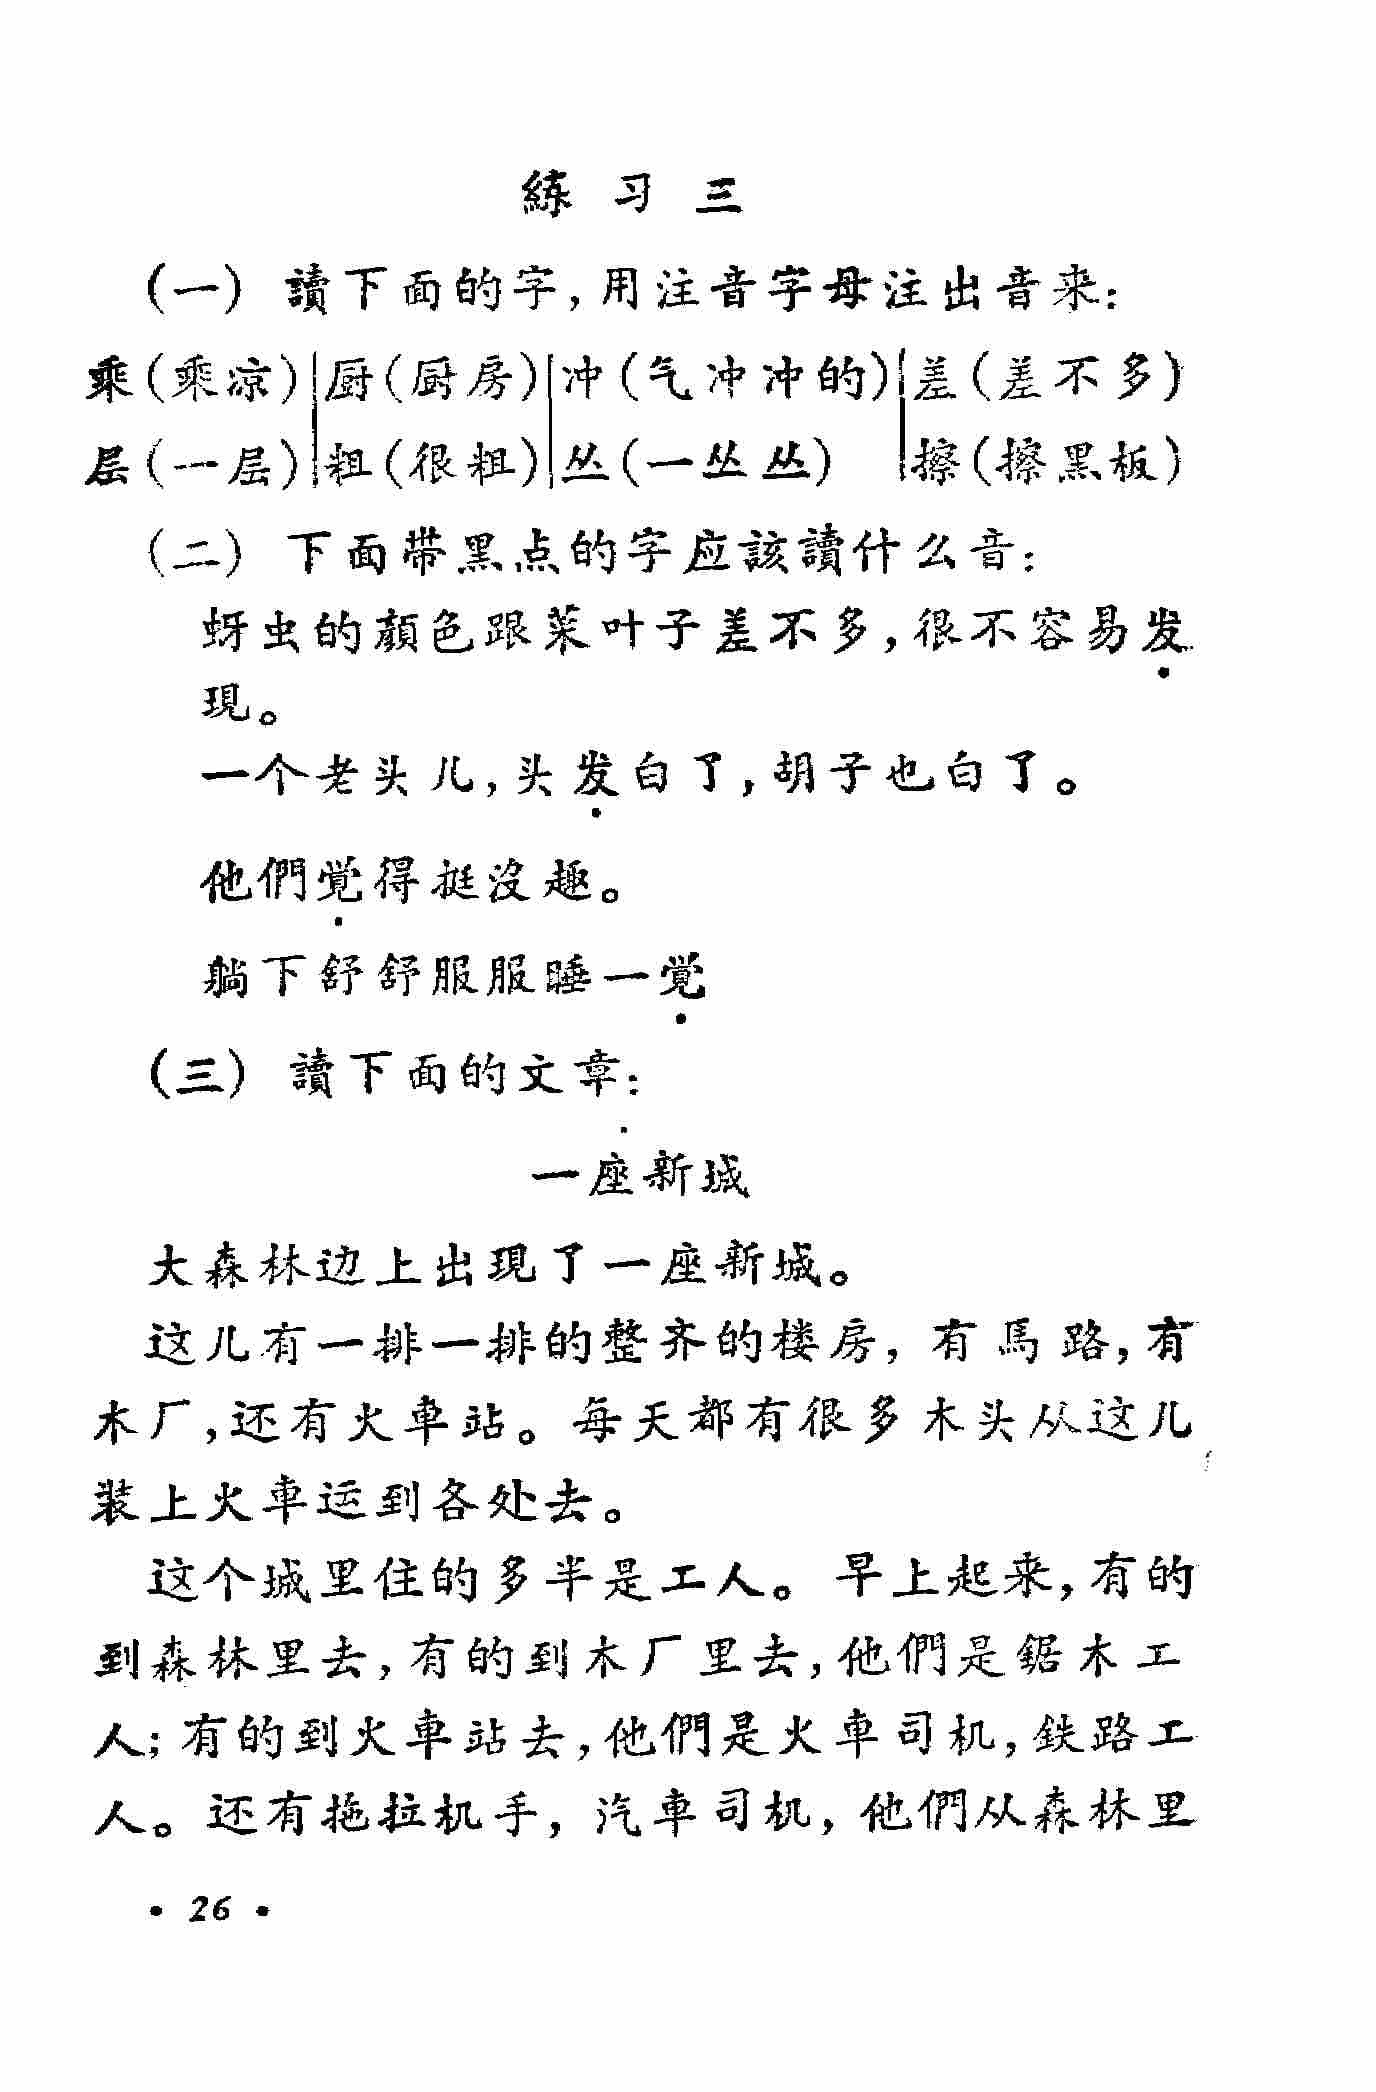 練习三
(一) 讀下面的字,用注音字母注出音来:
乘(乘凉)|厨(厨房)|冲(气冲冲的)|差(差不多)
层(一层)|粗(很粗)|丛(一丛丛)|擦(擦黑板)
(二) 下面带黑点的字应該讀什么音:
蚜虫的顏色跟菜叶子差不多,很不容易发
現。
一个老头儿,头发白了,胡子也白了。
他們覚得挺沒趣。
躺下舒舒服服睡一覚
(三) 讀下面的文章:
一座新城
大森林边上出現了一座新城。
这儿有一排一排的整齐的楼房, 有馬路,有
木厂,还有火車站。每天都有很多木头从这儿
装上火車运到各处去。
这个城里住的多半是工人。早上起来,有的
到森林里去,有的到木厂里去,他們是鋸木工
人;有的到火車站去,他們是火車司机,鉄路工
人。还有拖拉机手, 汽車司机, 他們从森林里
• 26 •